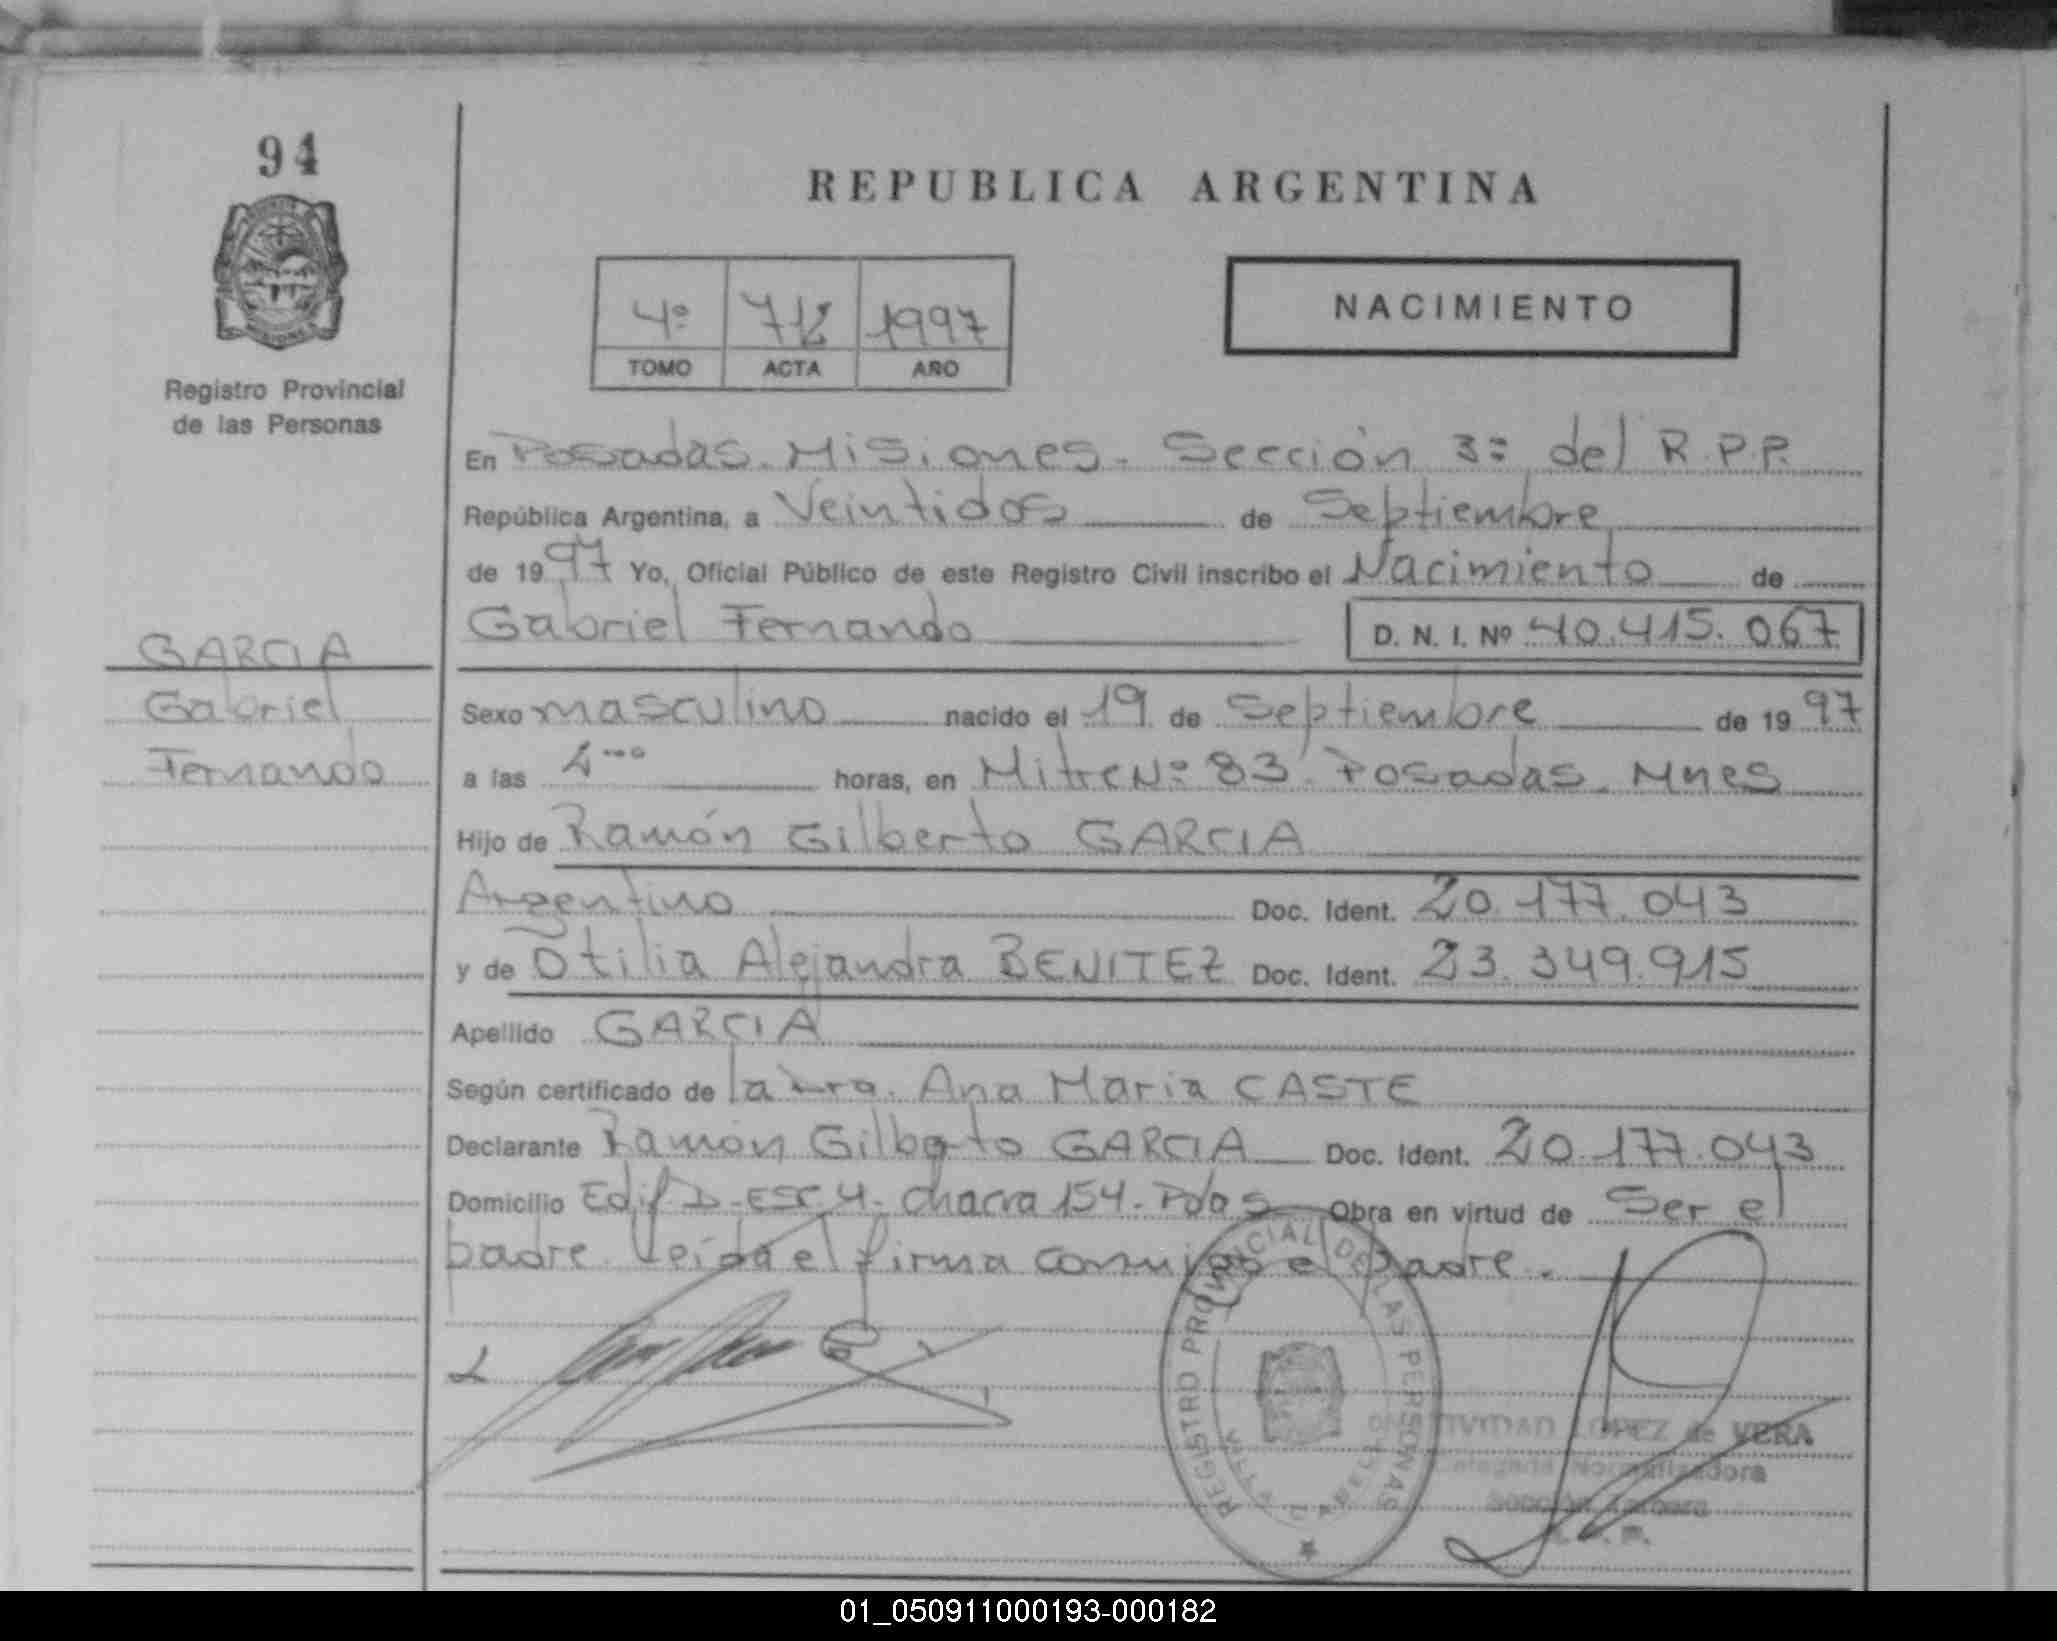 94
REPUBLICA ARGENTINA
4º 712 1997
TOMO ACTA AÑO
NACIMIENTO
Registro Provincial
de las Personas
En Posadas. Misiones. Sección 3ª del R.P.P.
República Argentina, a Veintidos de Septiembre
de 1997 Yo, Oficial Público de este Registro Civil inscribo el Nacimiento de
Gabriel Fernando D. N. I. Nº 40.415.067
GARCIA
Gabriel
Fernando
Sexo masculino nacido el 19 de Septiembre de 1997
a las horas, en Mitre Nº 83. Posadas. Mnes
Hijo de Ramón Gilberto GARCIA
Argentino Doc. Ident. 20.177.043
y de Otilia Alejandra BENITEZ Doc. Ident. 23.349.915
Apellido GARCIA
Según certificado de la Ana Maria CASTE
Declarante Ramón Gilberto GARCIA Doc. Ident. 20.177.043
Domicilio Edif D - ESC. 4 - chacra 154 - Pdas Obra en virtud de Ser el
padre. Leida el firma conmigo el padre.
REGISTRO PROVINCIAL DE LAS PERSONAS
LOPEZ de VERA
Delegada Normalizadora
Sección Tercera
01_050911000193-000182